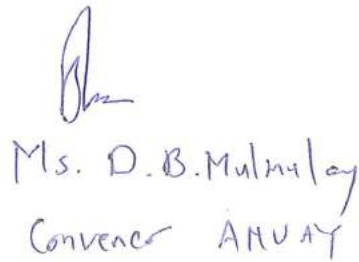 Ms. D. B. Mulmulay
Convenor ANVAY